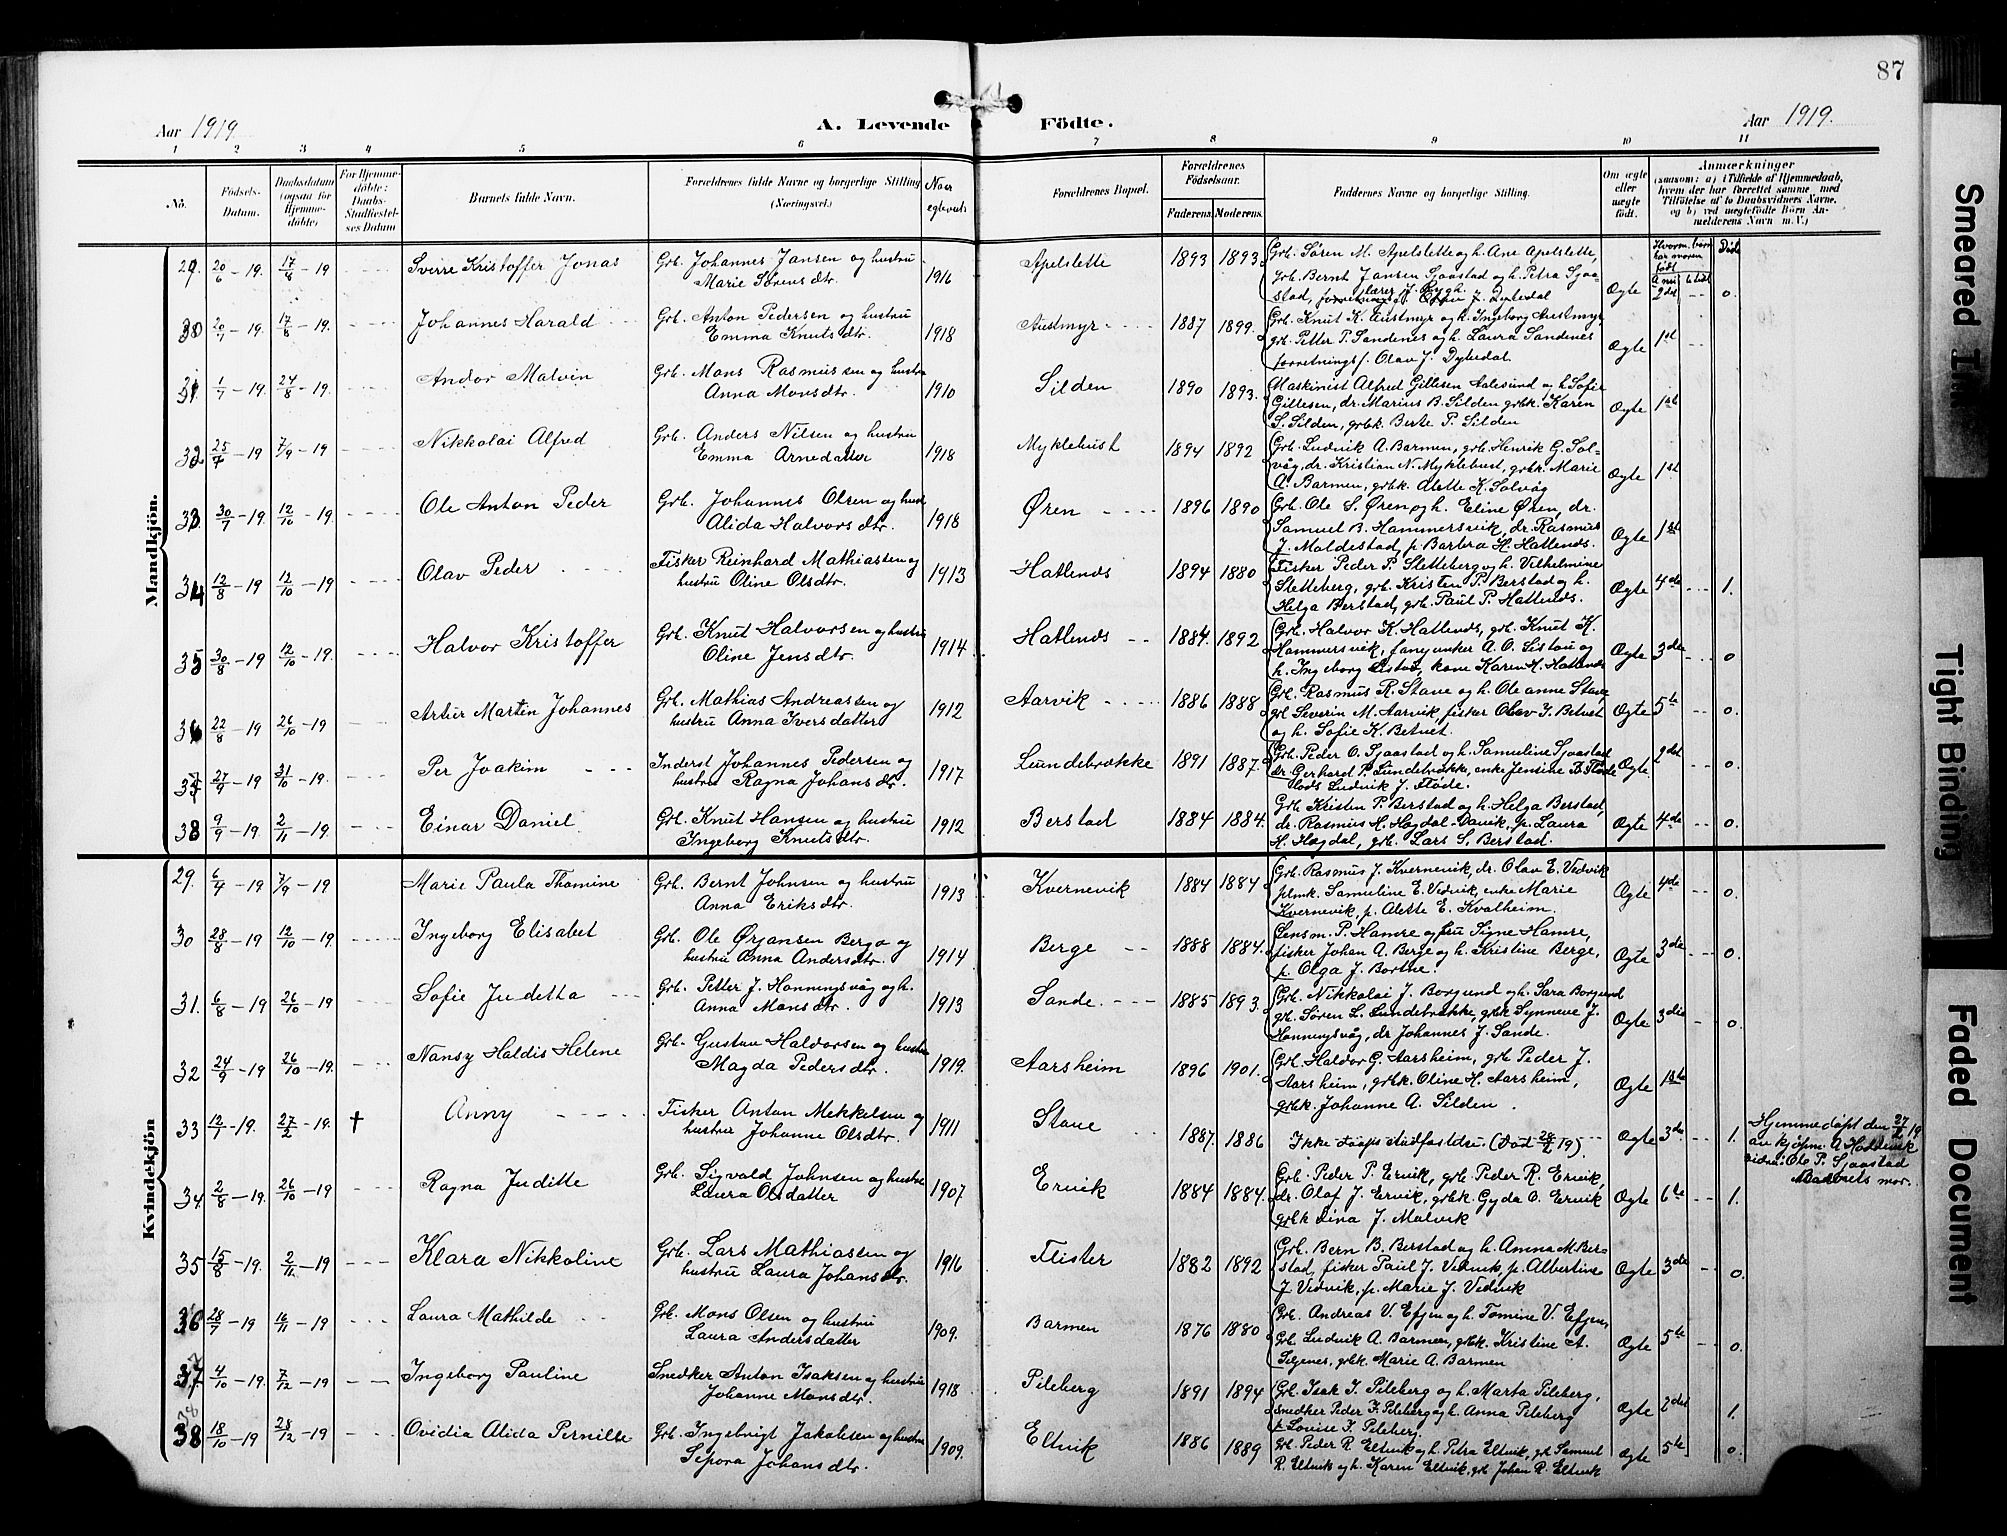 87
Aar 1919.
A. Levende
Födte.
Aar 1919.
1 2 3 4 5 6 7 8 9 10 11
No.
Födsels-Datum.
Daabsdatum (ogsaa for Hjemmedöbte)
For Hjemmedöbte: Daabs-Stadfæstelses Datum
Barnets fulde Navn.
Forældrenes fulde Navne og borgerlige Stilling (Næringsvei.)
Naar egteviet
Forældrenes Bopæl.
Forældrenes Födselsaar.
Faderens. Moderens.
Faddernes Navne og borgerlige Stilling.
Om ægte eller uægte födt.
Anmærkninger
(saasom: a) i Tilfælde af Hjemmedaab, hvem der har forrettet samme med Tilföielse af to Daabsvidners Navne, og b) ved uægtefödte Börn Anmelderens Navn m. V.)
Mandkjön.
29. 20/6 - 19. 17/8 - 19 Sverre Kristoffer Jonas
Grb. Johannes Jansen og hustru
Marie Sörensdtr. 1916
Apelsette 1893 1893.
Grb. Sören M. Apelsette og h. Ane Apelsette,
grb. Bernt Jansen Sjaastad og h. Petra Sjaa-
stad,
Ægte 2det 0.
30 20/7 - 19. 17/8 - 19. Johannes Harald
Grb. Anton Pedersen og hustru
Emma Knutsdtr. 1918
Austmyr 1887 1899.
Grb. Knut K. Austmyr og h. Ingeborg Austmyr,
grb. Petter P. Sandenes og h. Laura Sandenes
forretningsf. Olav J. Dyledal.
Ægte 1st
31. 1/7 - 19. 24/8 - 19. Andor Malvin
Grb. Mons Rasmussen og hustru
Anna Monsdtr. 1910
Silden 1890 1893.
Maskinist Alfred Gillesen Aalesund og h. Sofie
Gillesen, dr. Marius B. Silden grbk. Karen
S. Silden, grbk. Berte P. Silden
Ægte 1st
32 25/7 - 19 7/9 - 19 Nikkolai Alfred
Grb. Anders Nilsen og hustru
Emma Arnedatter 1918
Myklebust 1894 1892
Grb. Ludvik A. Barmen, grb. Henrik G. Sol-
våg, dr. Kristian N. Myklebust, grbk. Marie
A. Barmen, grbk. Alette K. Solvåg
Ægte 1st
33 30/7 - 19. 12/10 - 19. Ole Anton Peder
Grb. Johannes Olsen og hust
Alida Halvorsdtr. 1918
Øren 1896 1890
Grb. Ole S. Øren og h. Eline Øren, dr.
Samuel B. Hammersvik, dr. Rasmus
J. Maldestad, p. Barbra H. Hatlends.
Ægte 1st
34 12/8 - 19 12/10 - 19 Olav Peder
Fisker Reinhard Mathiassen og
hustru Oline Olsdtr. 1913
Hatlends 1894 1880
Fisker Peder P. Sletteberg og h. Vilhelmine
Sletteberg, grb. Kristen P. Berstad og h.
Helga Berstad, grb. Paul P. Hatlends.
Ægte 4de 1.
35 30/8 - 19 12/10 - 19. Halvor Kristoffer
Grb. Knut Halvorsen og hustru
Oline Jensdtr. 1914
Hatlends 1884. 1892
Grb. Halvor K. Hatlends, grb. Knut K.
Hammersvik, fanejunker A. O. Listou og
h. Ingeborg Listou, kone Karen H. Hatlends
Ægte 3de 0
36 22/8 - 19 26/10 - 19 Artur Martin Johannes
Grb. Mathias Andreassen og
hustru Anna Iversdatter 1912
Aarvik 1886 1888
Grb. Rasmus R. Stave og h. Oleanne Stave,
grb Severin M. Aarvik, fisker Olav J. Betuet
og h. Sofie K. Betuet.
Ægte 5te 0.
37 27/9 - 19 31/10 - 19. Per Joakim
Inderst Johannes Pedersen og
hustru Ragna Johansdtr. 1917
Lundebrekke 1891 1887.
Grb. Peder O. Sjaastad og h. Samuline Sjaastad
dr. Gerhard P. Lundebrekke, enke Jensine B. Flöde
lods Ludvik J. Flöde.
Ægte 2det 0.
38 9/9 - 19. 2/11 - 19. Einar Daniel
Grb. Knut Hansen og hustru
Ingeborg Knutsdtr. 1912
Berstad 1884 1884.
Grb Kristen P. Berstad og h. Helga Berstad,
dr. Rasmus H. Hogdal Davik, p. Laura
H. Hogdal, grb. Lars S. Berstad.
Ægte 4de 0.
Kvindekjön
29. 6/4 - 19 7/9 - 19 Marie Paula Thomine
Grb. Bernt Johnsen og hustru
Anna Eriksdtr. 1913
Kvernevik 1884 1884
Grb. Rasmus J. Kvernevik, dr. Olav E. Vedvik
plmk. Samuline E. Vedvik, enke Marie
Kvernevik, p. Alette E. Kvalheim.
Ægte 4de 0.
30 28/8 - 19 12/10 - 19 Ingeborg Elisabet
Grb. Ole Ørjansen Berge og
hustru Anna Andersdtr. 1914
Berge 1888 1884.
Lensm. P. Hamre og fru Signe Hamre,
fisker Johan A. Berge og h. Kristine Berge,
p. Olga J. Bortne.
Ægte 3de 0.
31. 6/8 - 19 26/10 - 19 Sofie Juditta
Grb. Petter J. Honningsvåg og h.
Anna Monsdtr. 1913
Sande. 1885 1893.
Grb. Nikkolai J. Borgund og h. Sara Borgund
grb. Sören L. Lundebrekke, grbk Synneve J.
Honningsvåg, dr Johannes J. Sande.
Ægte 3die 0.
32 24/9 - 19 26/10 - 19. Nansy Haldis Helene
Grb. Gustav Haldorsen og hustru
Magda Pedersdtr. 1919.
Aarsheim 1896 1901.
Grb. Haldor G. Aarsheim, grb Peder J.
Aarsheim, grbk. Oline H. Aarsheim,
grbk. Johanne A. Silden.
Ægte 1ste
33 12/1 - 19. 27/2 - 19. † Anny
Fisker Anton Mekkelsen og
hustru Johanne Olsdtr. 1911
Stave 1887. 1886
Ikke daaps stadfæstelse. (Död 28/2 19).
Ægte 3de 1.
Hjemmedöpt den 27/2 19
av kjöpm. A Hoddevik
vidne: Ole P. Sjaastad
barnets mor.
34. 2/8 - 19. 26/10 - 19 Ragna Juditte
Grb. Sigvald Johnsen og hustru
Laura Olsdatter 1907
Ervik 1884 1884.
Grb. Peder P. Ervik, grb. Peder R. Ervik,
dr. Olaf J. Ervik, grbk Gyda O. Ervik
grbk Lina J. Malvik
Ægte 6te 1.
35 15/8 - 19. 2/11 - 19 Klara Nikkoline
Grb. Lars Mathiassen og
hustru Laura Johansdtr. 1916
Flister 1882 1892
Grb. Bern B. Berstad og h. Anna M. Ber-
stad, fisker Paul J. Vedvik, p. Albertine
J Vedvik, p. Marie J. Vedvik
Ægte 3de 0.
36 28/7 - 19 16/11 - 19 Laura Mathilde
Grb. Mons Olsen og hustru
Laura Andersdatter 1909.
Barmen 1876 1880
Grb. Andreas V. Efjen og h. Tomine V. Efjen,
Grb. Ludvik A. Barmen, grbk. Kristine A.
Seljenes, grbk. Marie A. Barmen
Ægte 5te 0.
37 4/10 - 19. 7/12 - 19 Ingeborg Pauline
Snedker Anton Isaksen og hustru
Johanne Monsdtr. 1918
Pileberg 1891 1894
Grb. Isak I. Pileberg og h. Marta Pileberg,
snedker Peder F. Pileberg og h. Anna Pileberg
p Lovise F. Pileberg.
Ægte 2det 1.
38 18/10 - 19 28/12 - 19 Ovidia Alida Pernille
Grb. Ingebrigt Jakobsen og hustru
Sepora Johansdtr. 1909.
Eltvik 1886 1889
Grb. Peder R Eltvik og h. Petra Eltvik, grb Samuel
R. Eltvik og h. Karen Eltvik, grb Johan R. Eltvik
Ægte 5te 0.
Smeared Ink
Tight Binding
Faded Document